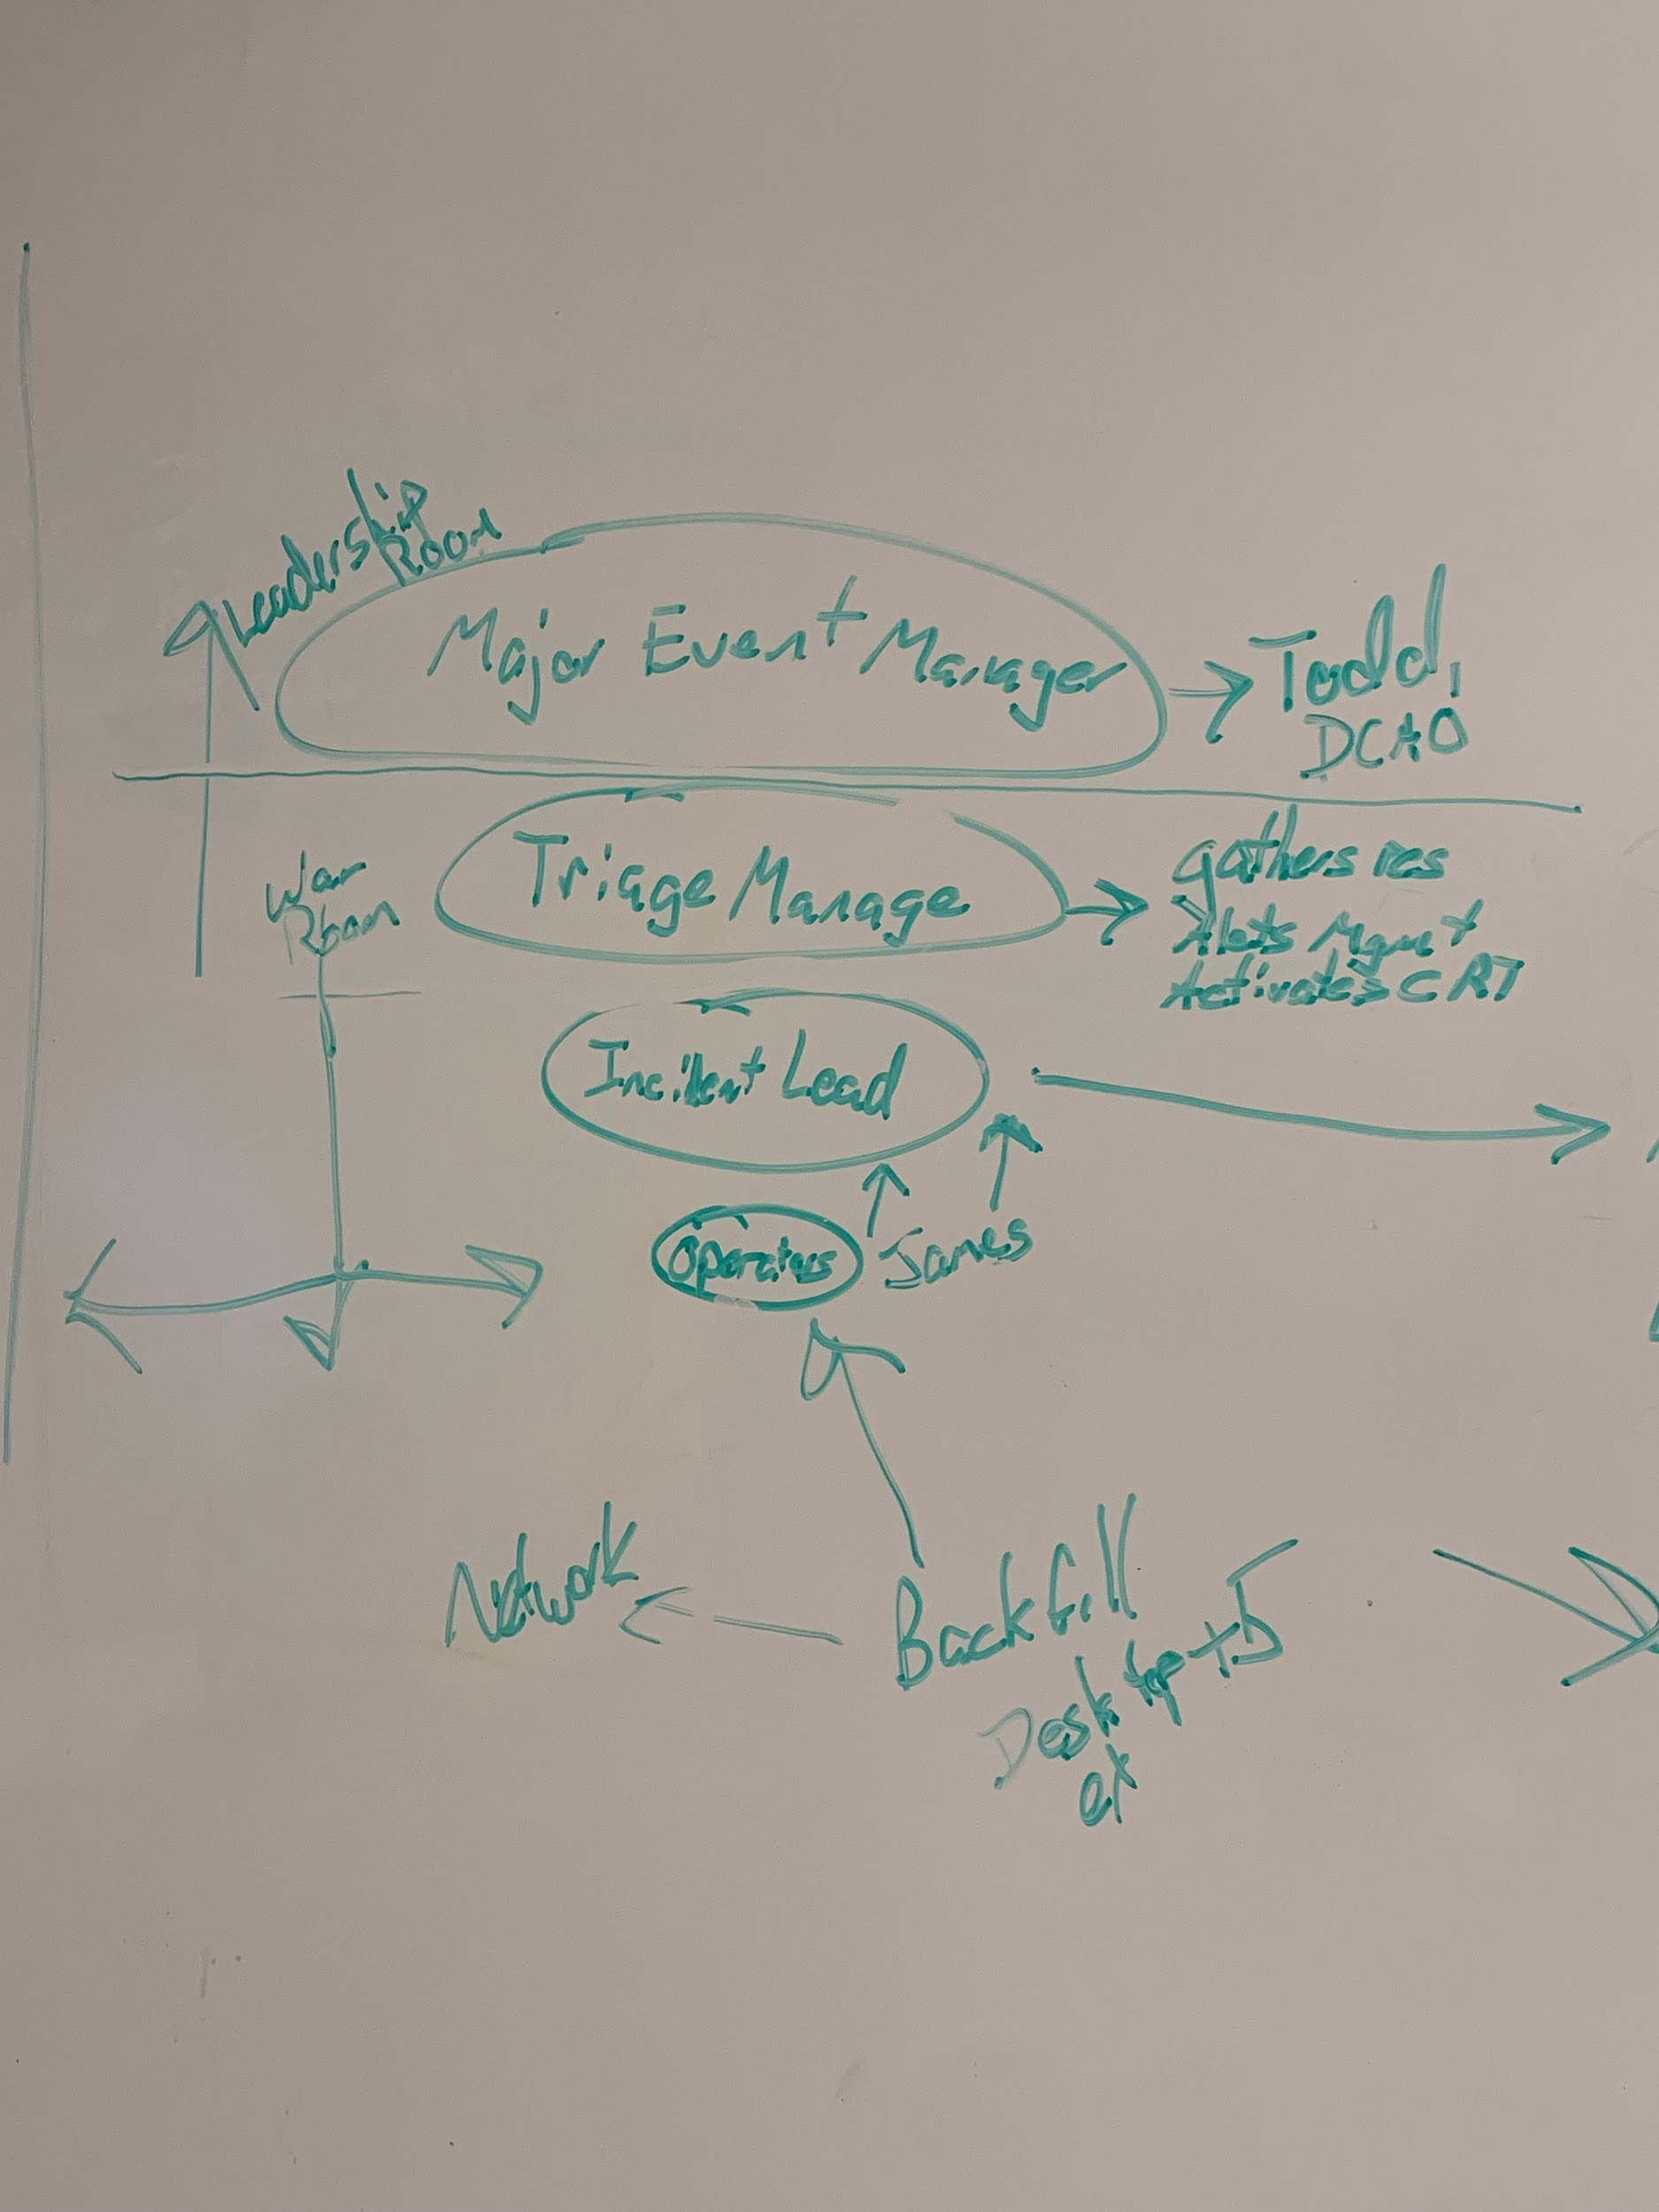 Leadership
Room
Major Event Manager
Todd,
DCAO
War
Room
Triage Manage
Gathers res
Alets Mgmet
Activates CRT
Incident Lead
Operators
James
Network
Backfill
Desk top